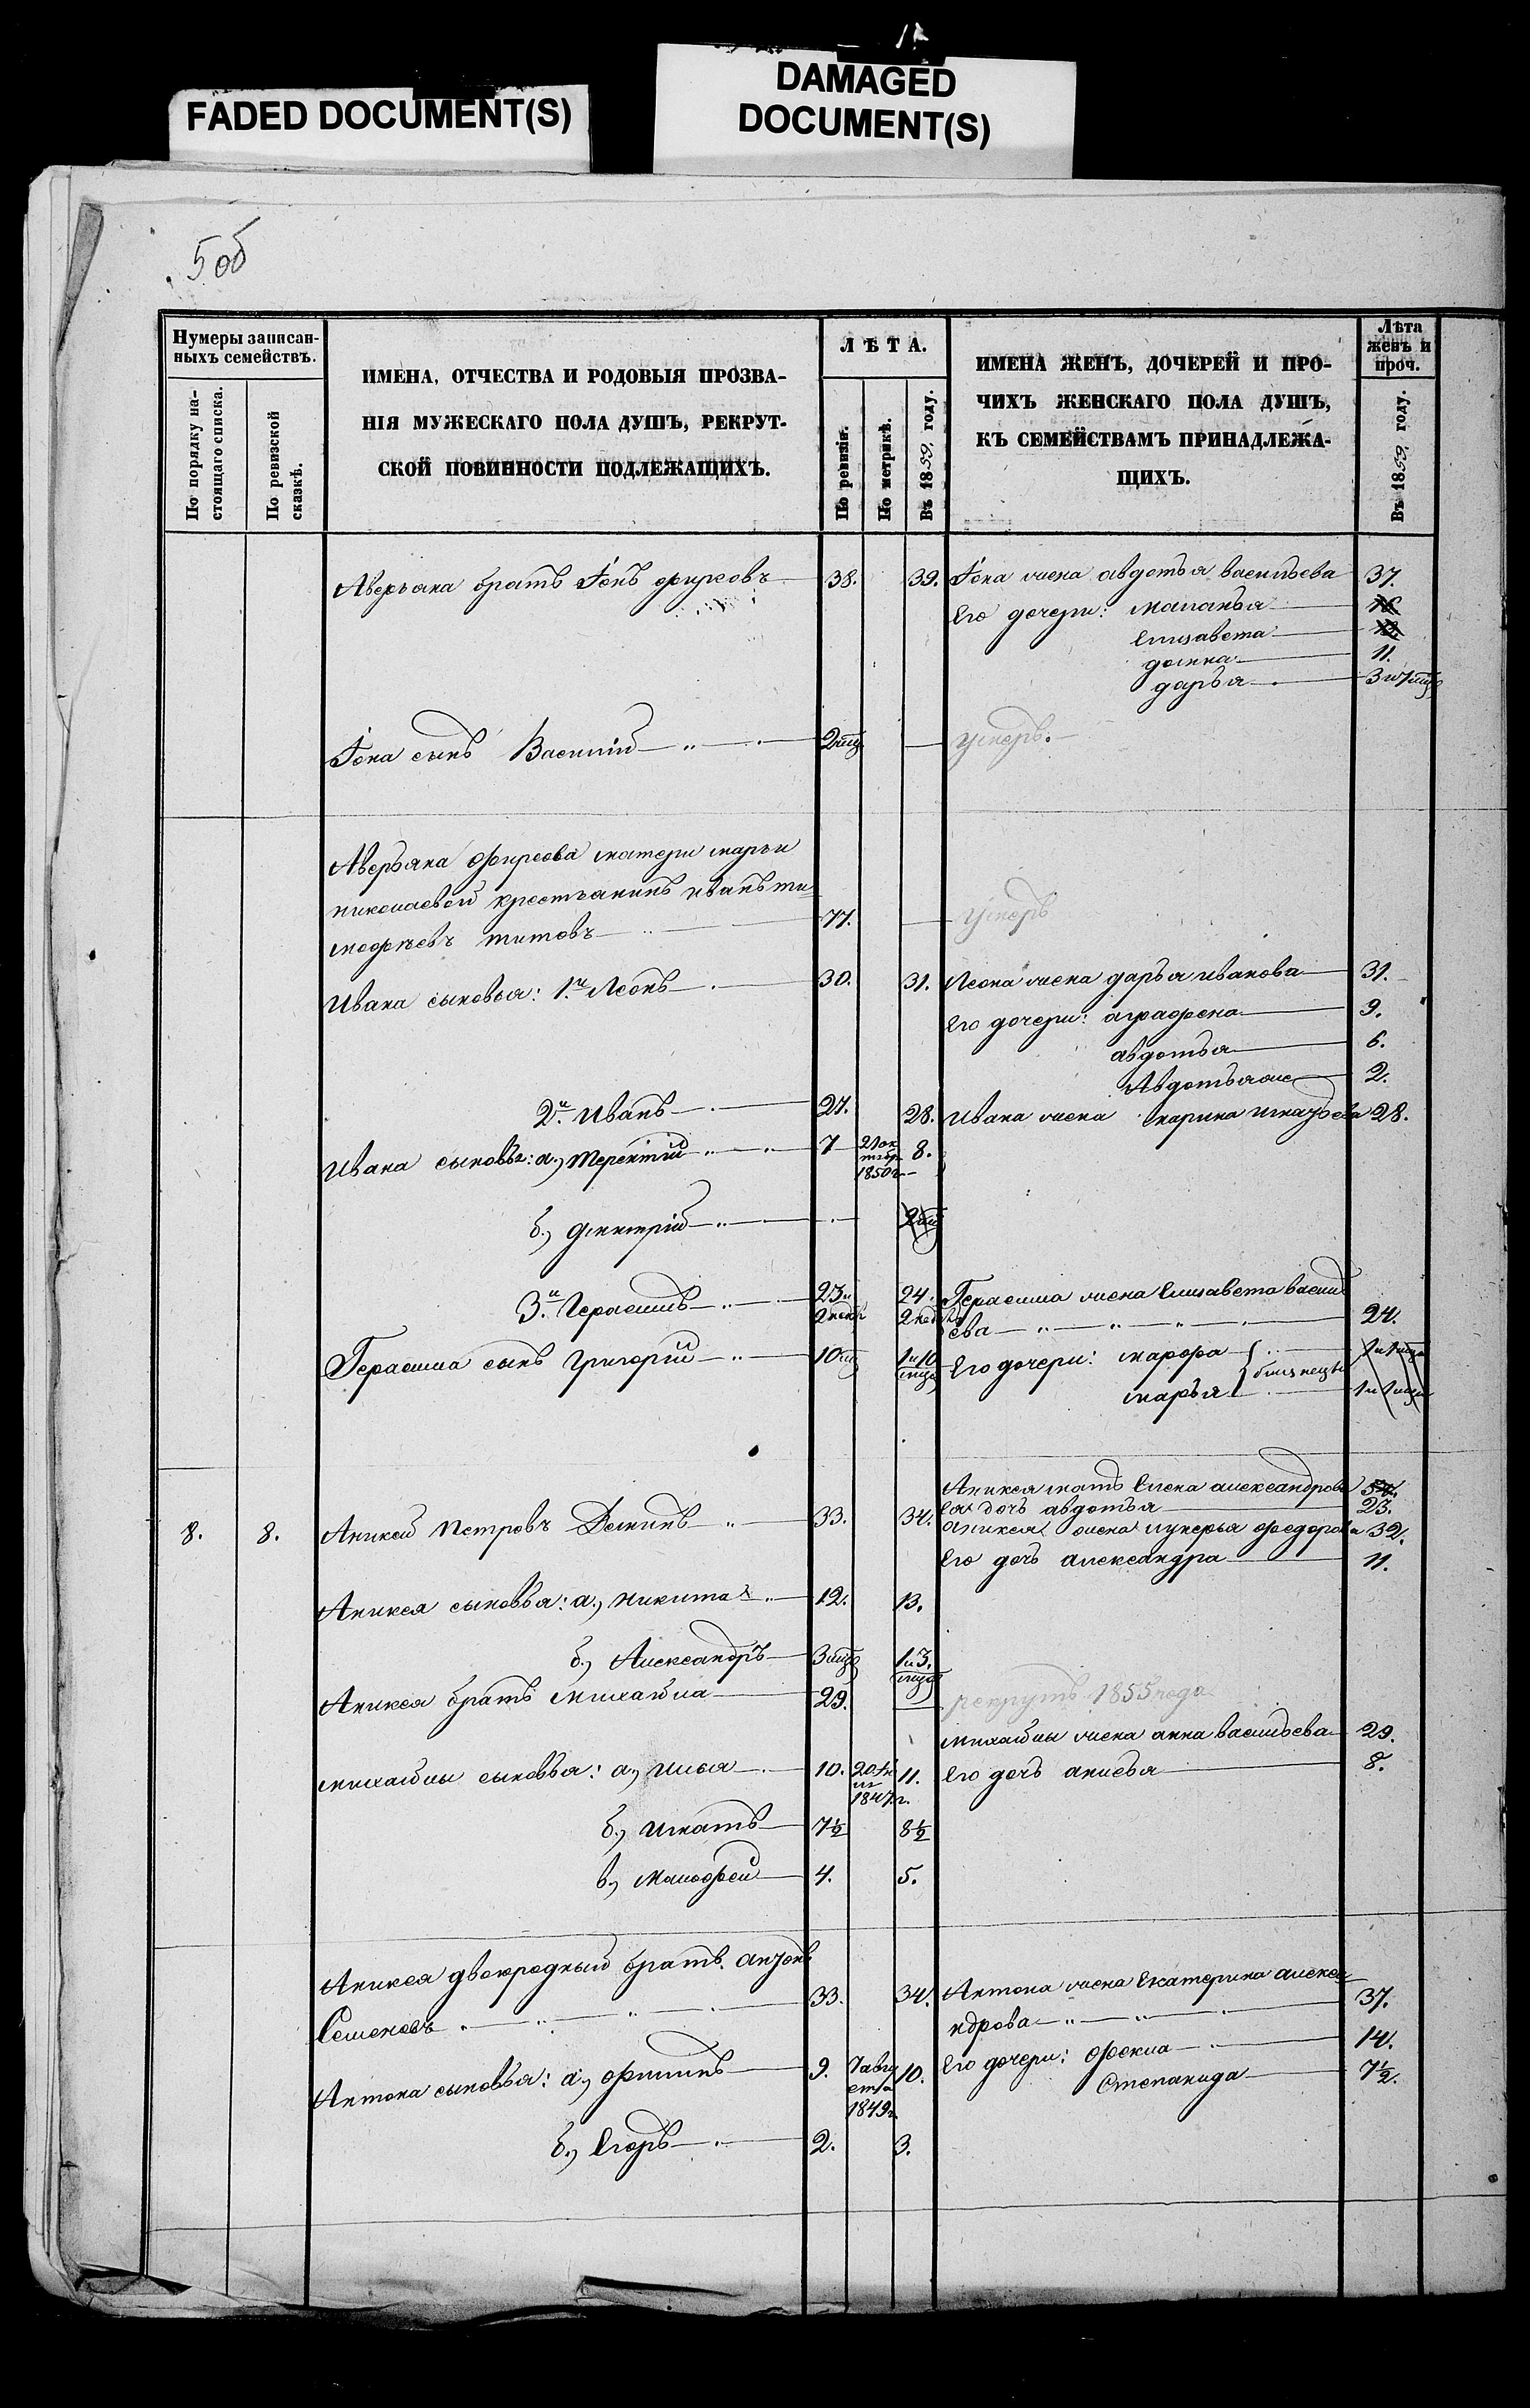 FADED DOCUMENT(S)
DAMAGED
DOCUMENT(S)
5 об
Нумеры записан-
ныхъ семействъ.
По порядку на-
стоящаго списка.
По ревизской
сказкѣ.
ИМЕНА, ОТЧЕСТВА И РОДОВЫЯ ПРОЗВА-
НІЯ МУЖЕСКАГО ПОЛА ДУШЪ, РЕКРУТ-
СКОЙ ПОВИННОСТИ ПОДЛЕЖАЩИХЪ.
ЛѢТА.
По ревизіи.
По метрикѣ.
Въ 1859 году.
ИМЕНА ЖЕНЪ, ДОЧЕРЕЙ И ПРО-
ЧИХЪ ЖЕНСКАГО ПОЛА ДУШЪ,
КЪ СЕМЕЙСТВАМЪ ПРИНАДЛЕЖА-
ЩИХЪ.
Лѣта
женъ и
проч.
Въ 1859 году.
Аверьяна братъ Іонъ фирсовъ 38. 39. Іона жена авдотья васильева 37.
Его дочери: маланья
Елисавета
домна 11.
дарья 3 и 7 мцѣ
Іона сынъ Василій 2 мцѣ — умеръ.
Аверьяна фирсова матери марьи
николаевой крестьянинъ иванъ ти-
мофѣевъ титовъ 77. — умеръ
Ивана сыновья: 1.й Леонъ 30. 31. Леона жена дарья иванова 31.
Его дочери: аграфена 9.
авдотья 6.
Авдотья же 2.
2.й Иванъ 27. 28. Ивана жена марина игнатьева 28.
Ивана сыновья: а.) терентій 7 21 ок
тябр
1850 г. 8.
б.) дмитрій 2 мц
3.й Герасимъ 23 и
2 нед. 24. 2 нед. Герасима жена Елисавета василь
ева 24.
Герасима сынъ григорій 10 мц 1 и 10
мцѣ Его дочери: марфа 1 и 1 мцѣ
близнецы
марья 1 и 1 мцѣ
Аникея мать Елена александрова
Ея дочь авдотья 23.
8. 8. Аникей Петровъ Деминъ 33. 34. аникея жена лукерья федорова 32.
Его дочь александра 11.
Аникея сыновья: а.) никита 12. 13.
б.) Александръ 3 мцѣ 1 и 3.
мцѣ
Аникея братъ михайла 29. — рекрутъ 1855 года
михайлы жена анна васильева 29.
михайлы сыновья: а.) илья 10. 20
1847 г. 11. Его дочь анисья 8.
б.) игнатъ 7½ 8½
в.) малофей 4. 5.
Аникея двоюродный братъ антонъ
Семеновъ 33. 34. Антона жена Екатерина алекса
ндрова 37.
Его дочери: фекла 14.
Антона сыновья: а.) филипъ 9. 7 авгу
ста
1849 г. 10. Степанида 7½.
б.) Егоръ 2. 3.